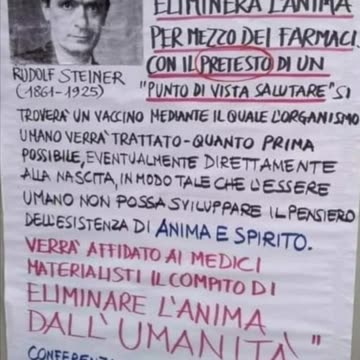 ELIMINERÀ L'ANIMA
PER MEZZO DEI FARMACI.
CON IL PRETESTO DI UN
RUDOLF STEINER
"PUNTO DI VISTA SALUTARE" SI
(1861-1925)
TROVERÀ UN VACCINO MEDIANTE IL QUALE L'ORGANISMO
UMANO VERRÀ TRATTATO-QUANTO PRIMA
POSSIBILE, EVENTUALMENTE DIRETTAMENTE
ALLA NASCITA, IN MODO TALE CHE L'ESSERE
UMANO NON POSSA SVILUPPARE IL PENSIERO
DELL'ESISTENZA DI ANIMA E SPIRITO.
VERRÀ AFFIDATO AI MEDICI
MATERIALISTI IL COMPITO DI
ELIMINARE L'ANIMA
DALL'UMANITÀ"